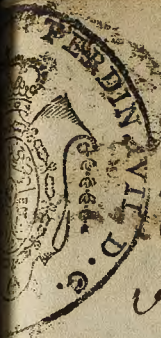 FERDIN. VII D. G.